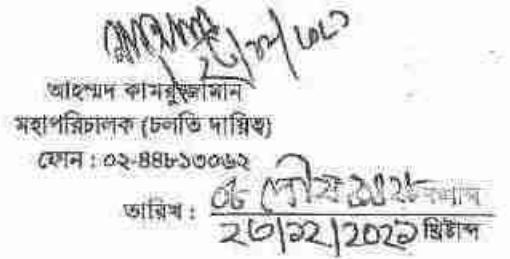 ২৩/১২/২০২১
আহম্মদ কামরুজ্জামান
মহাপরিচালক (চলতি দায়িত্ব)
ফোন : ০২-৪৪৮১৩০৬২
তারিখ : ০৮ পৌষ ১৪২৮ বঙ্গাব্দ
২৩/১২/২০২১ খ্রিষ্টাব্দ